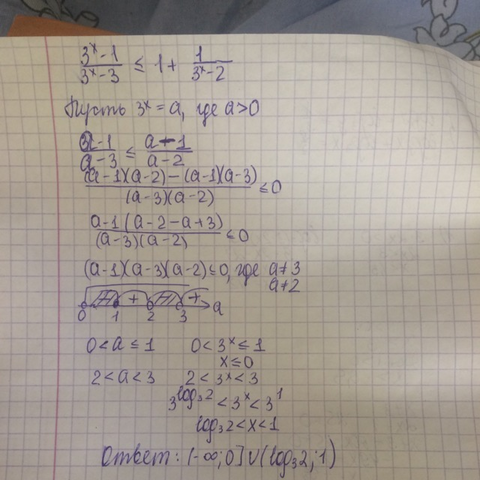 3^x-1/3^x-3 ≤ 1+ 1/3^x-2
Пусть 3^x = a, где a>0
a-1/a-3 ≤ a-1/a-2
(a-1)(a-2)-(a-1)(a-3)/(a-3)(a-2) ≤0
a-1(a-2-a+3)/(a-3)(a-2) ≤0
(a-1)(a-3)(a-2)≤0, где a≠3
a≠2
- + - +
0 1 2 3 a
0<a≤1 0<3^x≤1
x≤0
2<a<3 2<3^x<3
3^log₃2<3^x<3^1
log₃2<x<1
Ответ: (-∞;0]∪(log₃2;1)